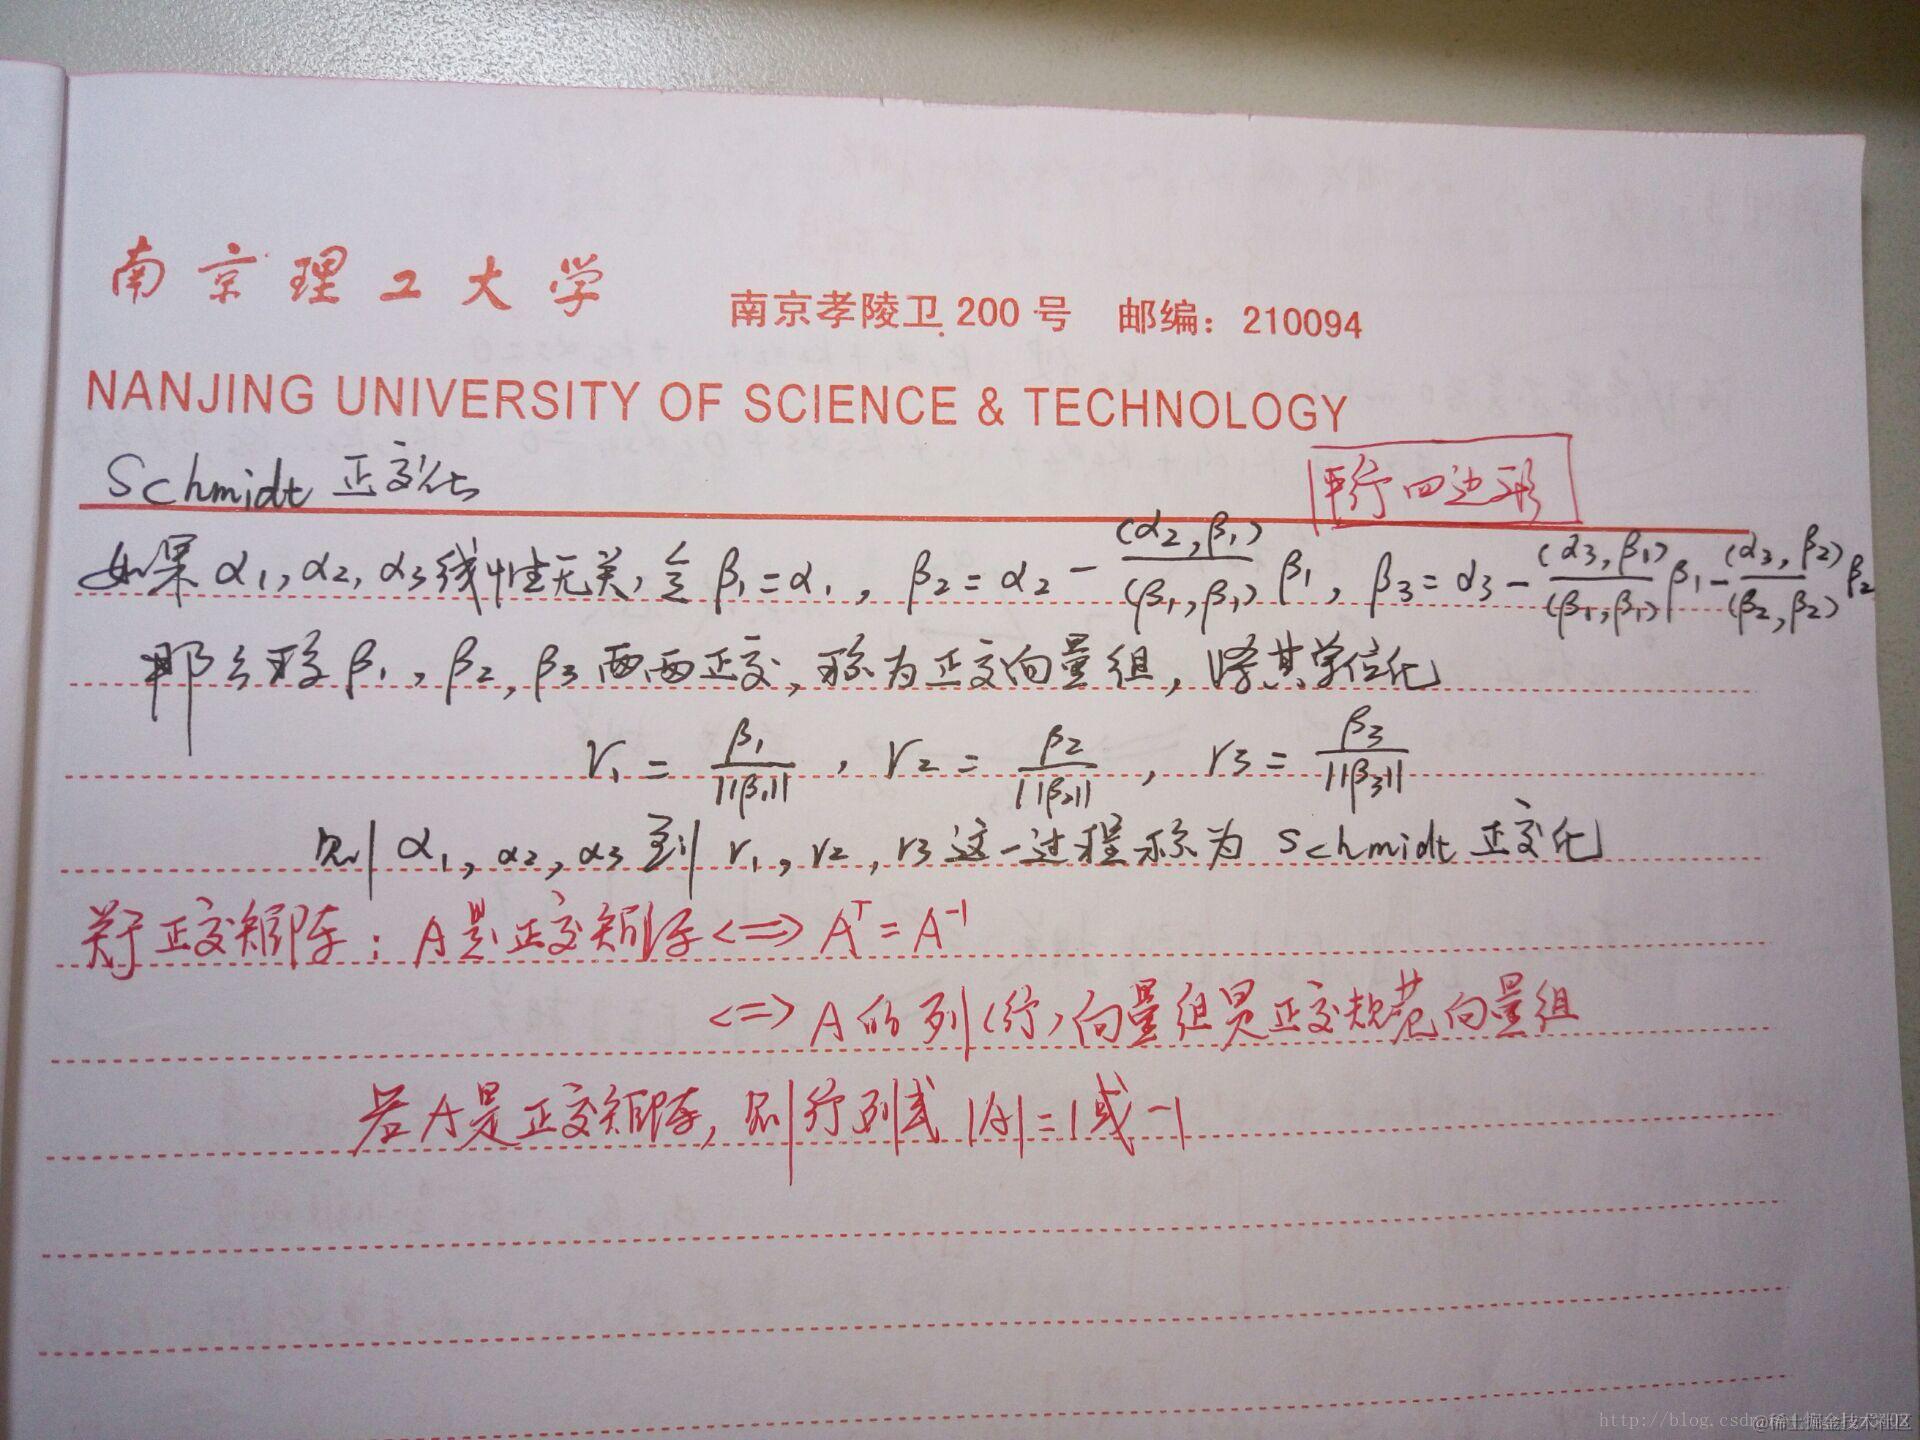 南京理工大学 南京孝陵卫 200 号 邮编：210094
NANJING UNIVERSITY OF SCIENCE & TECHNOLOGY
Schmidt 正交化 平行四边形
如果 α1, α2, α3 线性无关, 令 β1 = α1, β2 = α2 − (α2, β1)/(β1, β1) β1, β3 = α3 − (α3, β1)/(β1, β1) β1 − (α3, β2)/(β2, β2) β2
那么称 β1, β2, β3 两两正交, 称为正交向量组, 将其单位化
r1 = β1/||β1||, r2 = β2/||β2||, r3 = β3/||β3||
则 α1, α2, α3 到 r1, r2, r3 这一过程称为 Schmidt 正交化
关于正交矩阵: A是正交矩阵 <=> Aᵀ = A⁻¹
<=> A 的列(行)向量组是正交规范向量组
若A是正交矩阵, 则行列式 |A| = 1或 −1
@稀土掘金技术社区